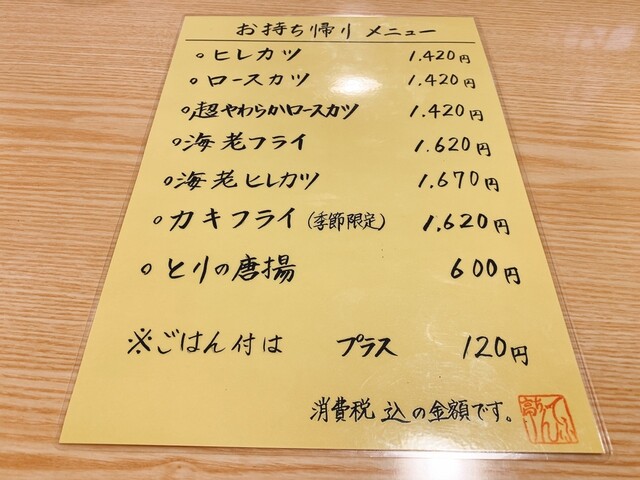 お持ち帰り メニュー
○ ヒレカツ 1.420円
○ ロースカツ 1.420円
○超やわらかロースカツ 1.420円
○海老フライ 1.620円
○海老ヒレカツ 1.670円
○カキフライ(季節限定) 1,620円
○とりの唐揚 600円
※ごはん付は プラス 120円
消費税込の金額です。